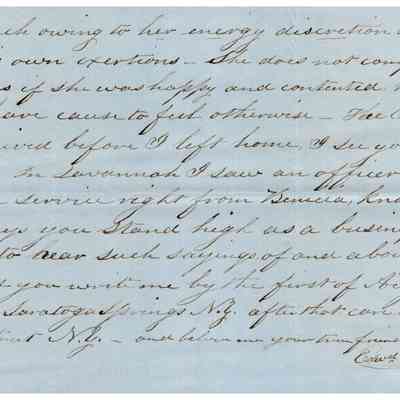 owing to her energy discretion
own exertions – She does not
if she was happy and contented
have cause to feel otherwise – The
before I left home, I see
In Savannah I saw an officer
service right from Benicia,
you Stand high as a
to hear such sayings of and
you write me by the first of
Saratoga Springs N.Y. after that care
N.Y. – and believe me your true friend